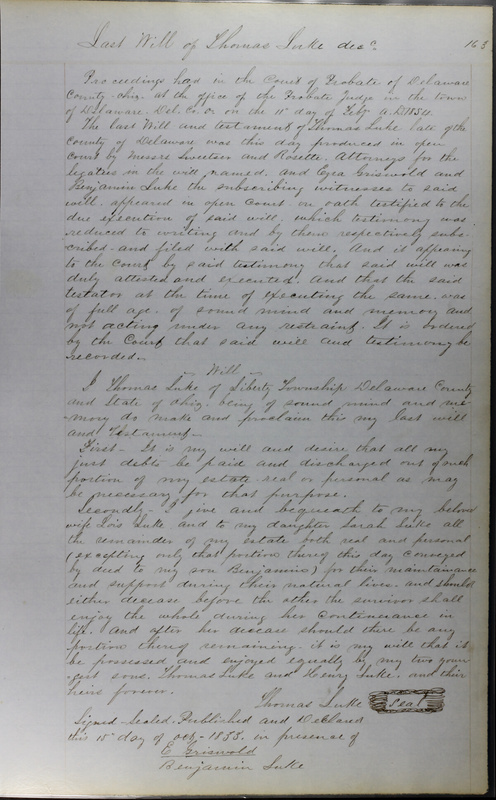 Last Will of Thomas Luke desc. 163
Proceedings had in the Court of Probate of Delaware
County Ohio. at the office of the Probate Judge in the town
of Delaware. Del. Co. O. on the 11th day of Feby A.D. 1854.
The last Will and testament of Thomas Luke late of the
County of Delaware was this day produced in open
Court by Messrs Sweetser and Rosette. Attorneys for the
legatees in the will named. and Ezra Griswold and
Benjamin Luke the subscribing witnesses to said
will. appeared in open Court on oath testified to the
due execution of said will. which testimony was
reduced to writing and by them respectively subs-
cribed and filed with said will. And it appearing
to the Court by said testimony that said will was
duly attested and executed. And that the said
testator at the time of executing the same. was
of full age. of sound mind and memory and
not acting under any restraint. It is ordered
by the Court that said will and testimony be
recorded.
Will
I Thomas Luke of Liberty Township Delaware County
and State of Ohio. being of sound mind and me-
mory do make and proclaim this my last will
and Testament—
First— It is my will and desire that all my
just debts be paid and discharged out of such
portion of my estate real or personal as may
be necessary for that purpose.
Secondly— I give and bequeath to my beloved
wife Lois Luke and to my daughter Sarah Luke all
the remainder of my estate both real and personal
(excepting only that portion thereof this day conveyed
by deed to my son Benjamin) for their maintainance
and support during their natural lives. and should
either decease before the other the survivor shall
enjoy the whole during her continuance in
life. And after her decease should there be any
portion thereof remaining. it is my will that it
be possessed and enjoyed equally by my two youn-
gest sons. Thomas Luke and Henry Luke. and their
heirs forever.
Thomas Luke seal
Signed-Sealed. Published and Declared
this 15th day of Oct. 1853. in presence of
E Griswold
Benjamin Luke